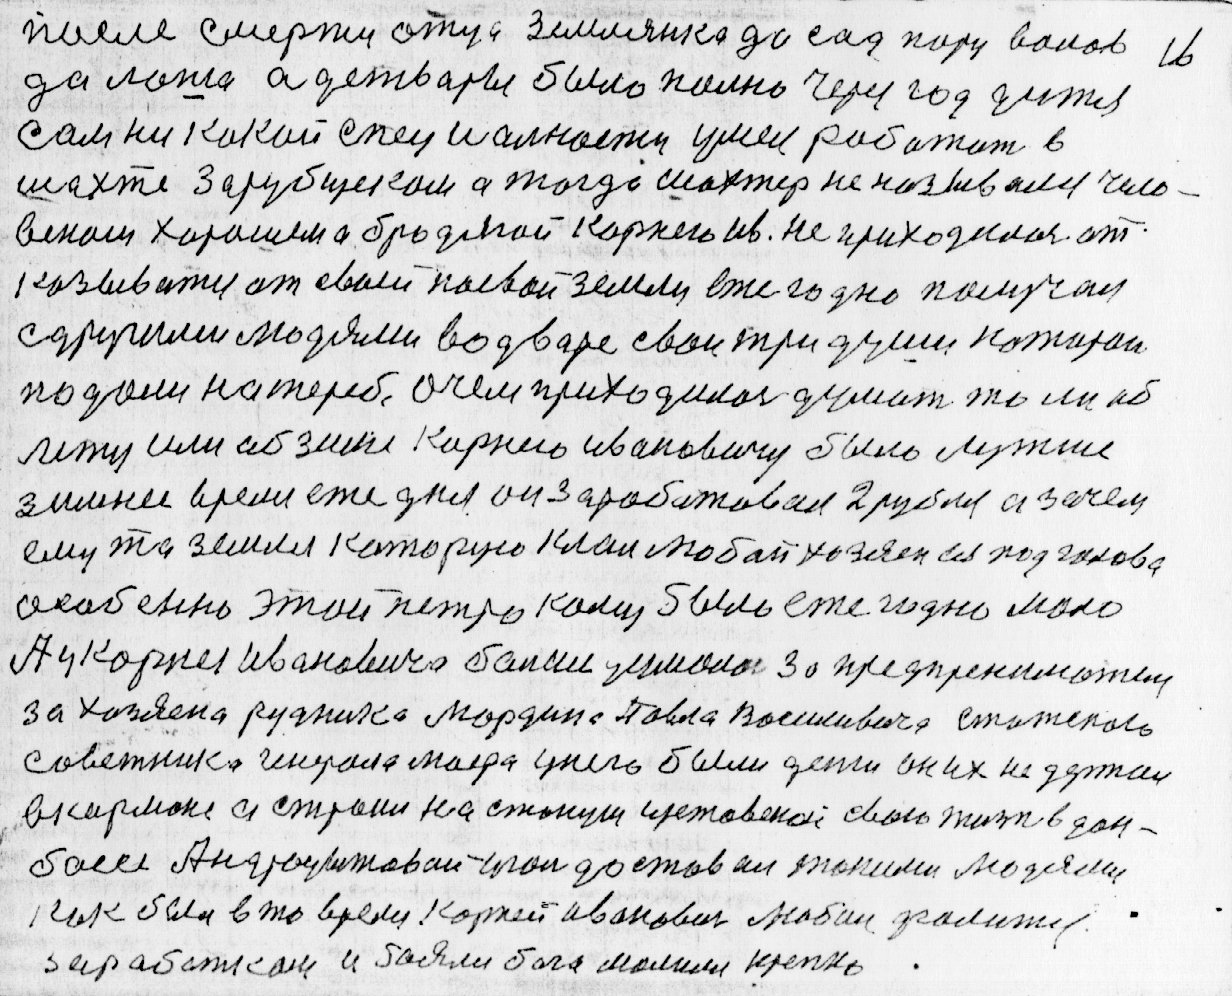 после смерти отца землянка да сад пару валов 16
да лоша а детвары было полно через год дитя
сам ни какой специалности умел работат в
шахте Зарубинском а тогда шахтер не называли чело-
веком харошем а бродягой Корнею Ив. не приходилоя от-
казыватя от своей паевой земли ежегодно получал
сдругими людями водваре свои три души каторои
подали на жереб. очем приходилоя думат то ли об
лету или об зиме Карнею ивановичу было лужше
зимнее время еже дня он заработовал 2 рубля а зачем
ему та земля каторую клал любой хозяен ся под галова
особенно этой петро кому было ежегодно мало
А у Корнея Ивановича балше за предпренимателя
за хозяена рудника Мордина Павла Василивича статского
советника генерала у него были денги он их не держал
вкармоне а строил на станции свою жизн в дон-
басе Андрою уголь доставал такими людями
как были в то время Корней иванович любил
заработком и баяли бога молили крепко